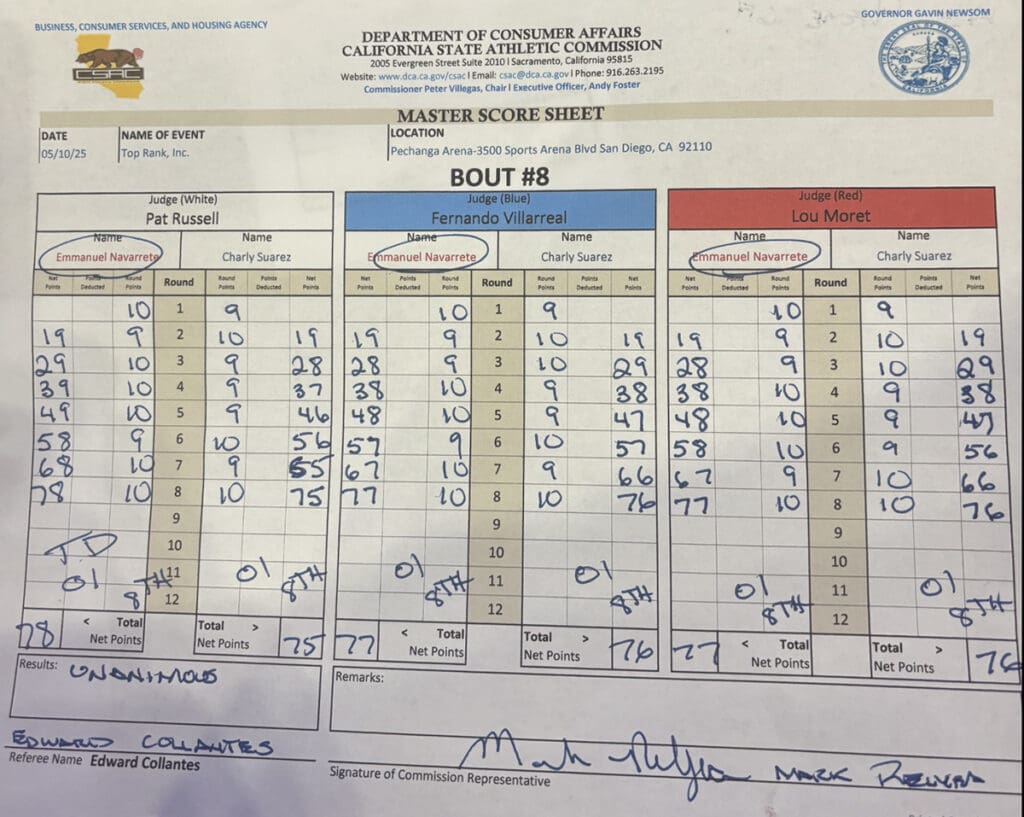 BUSINESS, CONSUMER SERVICES, AND HOUSING AGENCY
GOVERNOR GAVIN NEWSOM
CSAC
DEPARTMENT OF CONSUMER AFFAIRS
CALIFORNIA STATE ATHLETIC COMMISSION
2005 Evergreen Street Suite 2010 | Sacramento, California 95815
Website: www.dca.ca.gov/csac | Email: csac@dca.ca.gov | Phone: 916.263.2195
Commissioner Peter Villegas, Chair | Executive Officer, Andy Foster
MASTER SCORE SHEET
DATE NAME OF EVENT LOCATION
05/10/25 Top Rank, Inc. Pechanga Arena-3500 Sports Arena Blvd San Diego, CA 92110
BOUT #8
Judge (White) Judge (Blue) Judge (Red)
Pat Russell Fernando Villarreal Lou Moret
Name Name Name Name Name Name
Emmanuel Navarrete Charly Suarez Emmanuel Navarrete Charly Suarez Emmanuel Navarrete Charly Suarez
Net Points Points Deducted Round Points Round Round Points Points Deducted Net Points Net Points Points Deducted Round Points Round Round Points Points Deducted Net Points Net Points Points Deducted Round Points Round Round Points Points Deducted Net Points
10 1 9 10 1 9 10 1 9
19 9 2 10 19 19 9 2 10 19 19 9 2 10 19
29 10 3 9 28 28 9 3 10 29 28 9 3 10 29
39 10 4 9 37 38 10 4 9 38 38 10 4 9 38
49 10 5 9 46 48 10 5 9 47 48 10 5 9 47
58 9 6 10 56 57 9 6 10 57 58 10 6 9 56
68 10 7 9 55 67 10 7 9 66 67 9 7 10 66
78 10 8 10 75 77 10 8 10 76 77 10 8 10 76
9 9 9
TD 10 10 10
01 8TH 11 01 8TH 01 8TH 11 01 8TH 01 8TH 11 01 8TH
12 12 12
78 < Total Net Points Total > Net Points 75 77 < Total Net Points Total > Net Points 76 77 < Total Net Points Total > Net Points 76
Results: UNANIMOUS
Remarks:
EDWARD COLLANTES
Referee Name Edward Collantes
Signature of Commission Representative
MARK